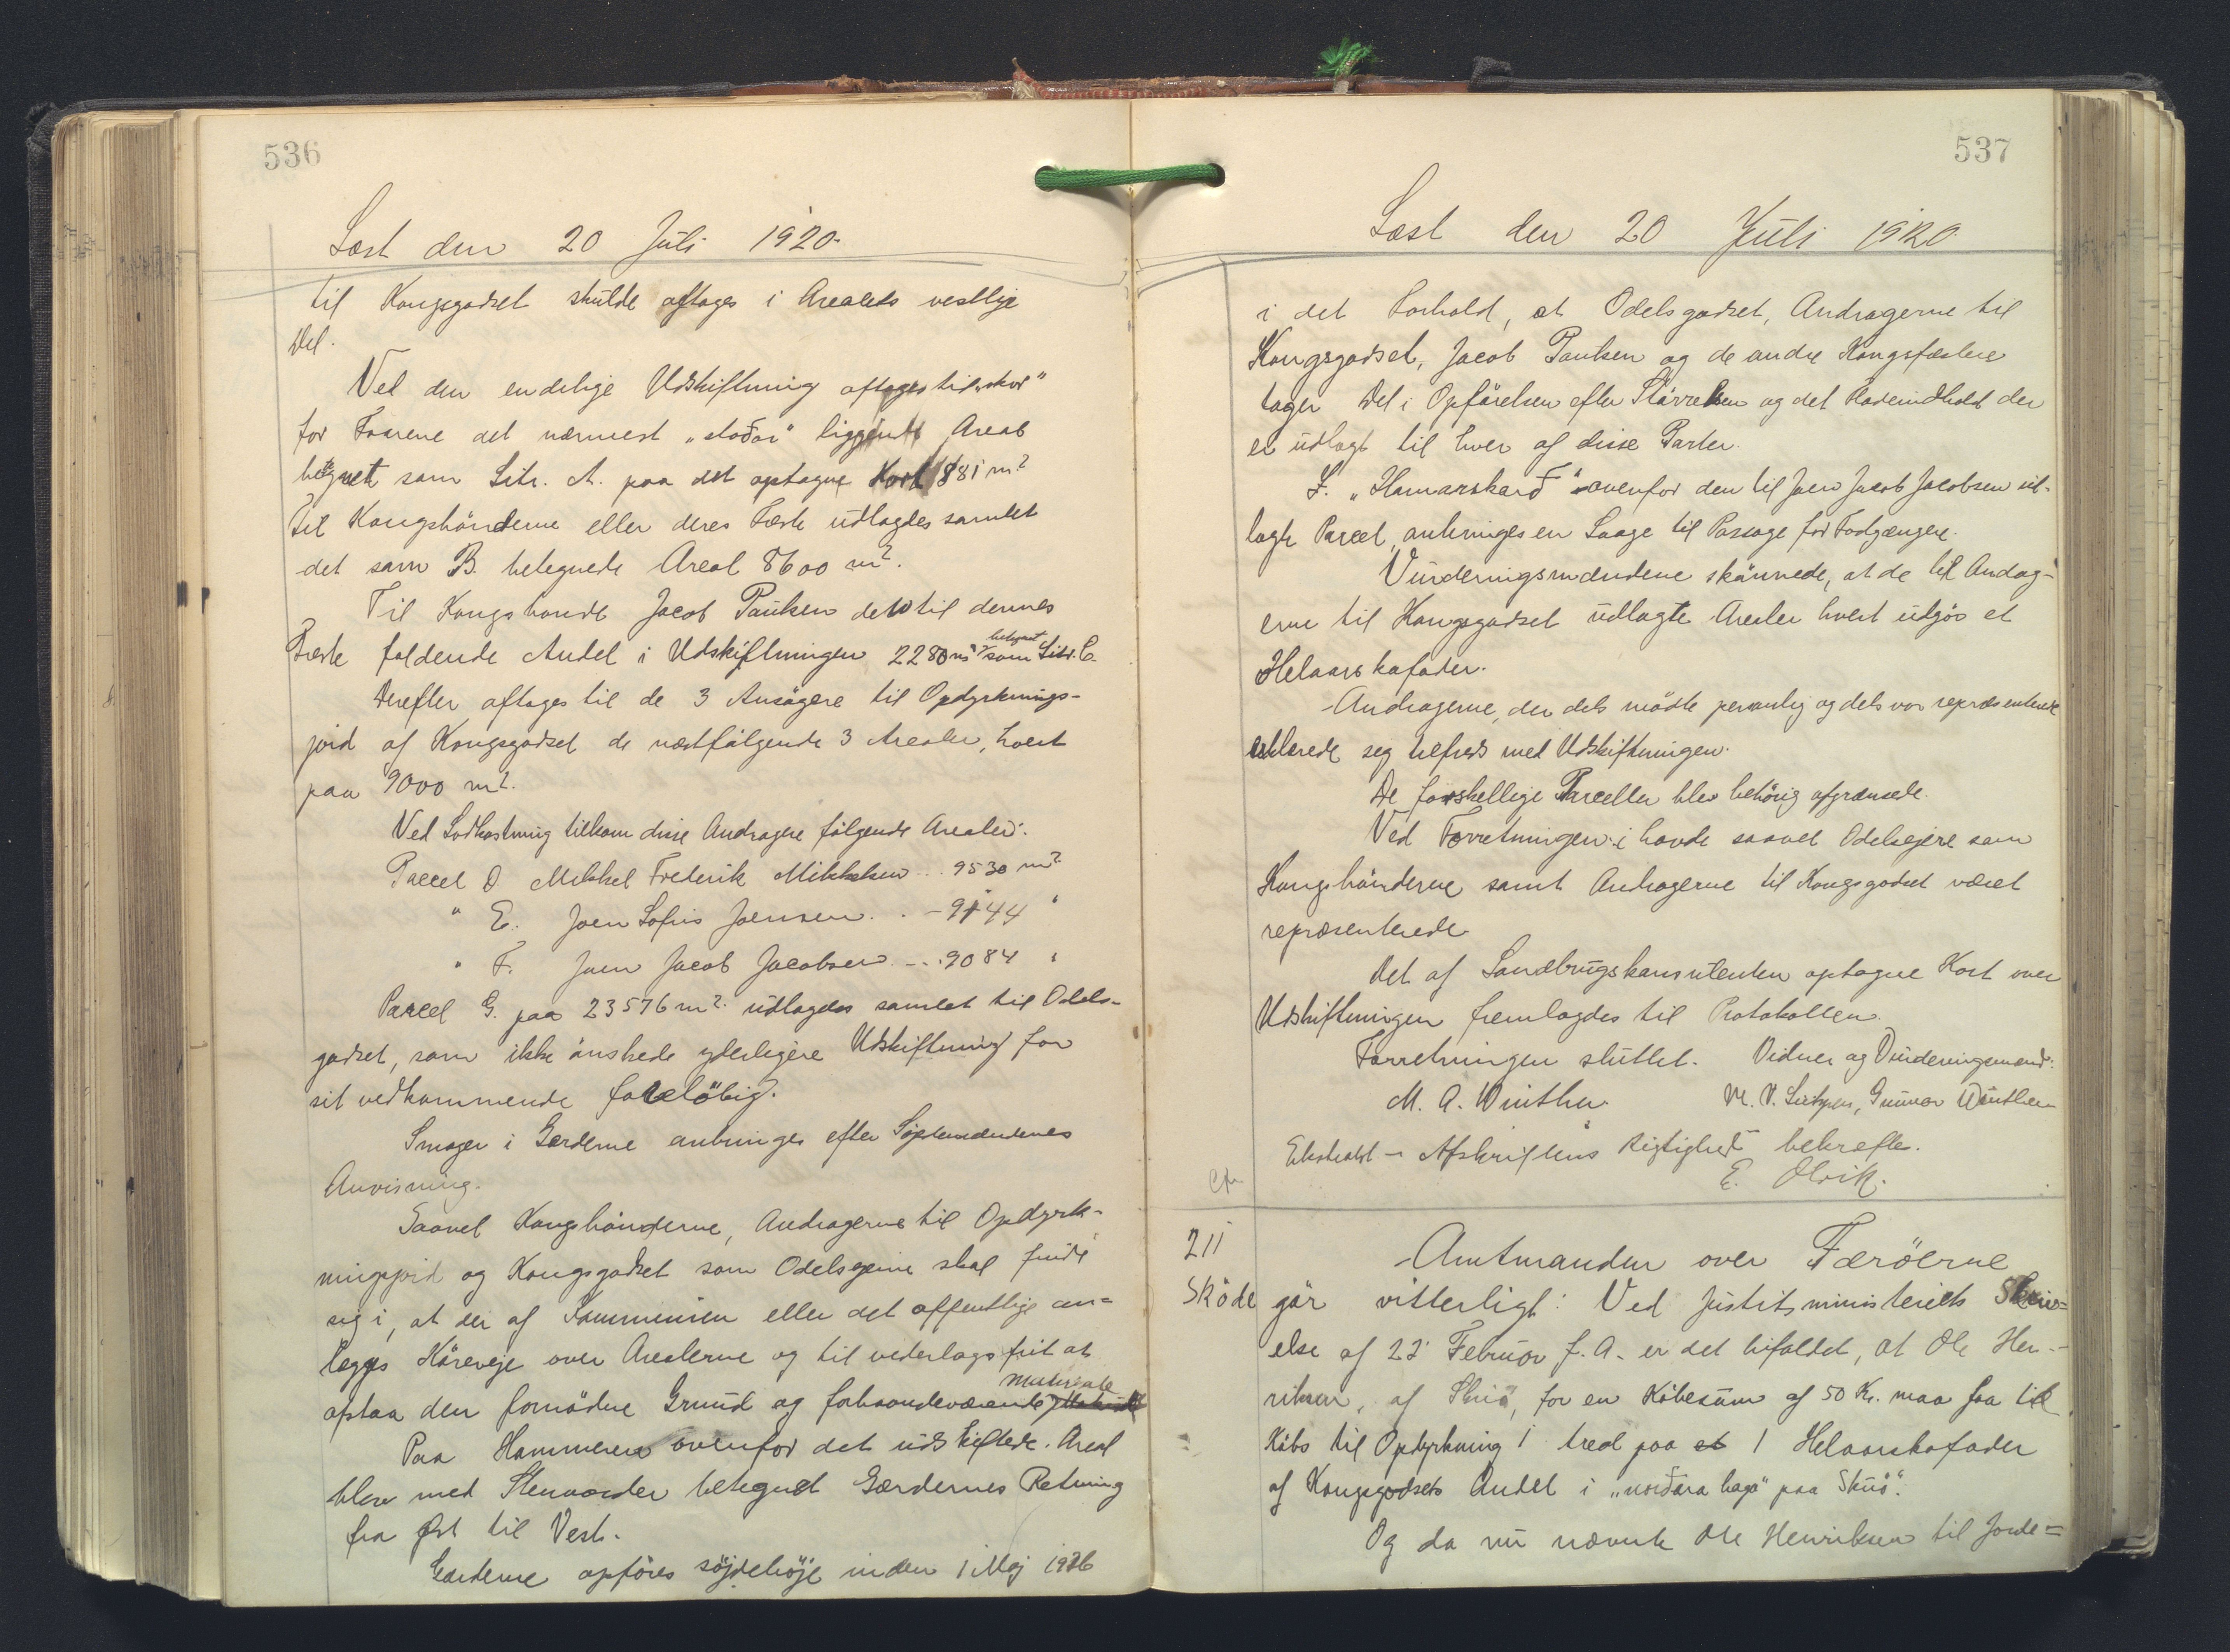 536
Læst den 20 Juli 1920.
til Kongsgodset skulde aftages i Arealets vestlige
Del.
Ved den endelige Udskiftning aftages til „skor"
for Faarene det nærmest „stođar" liggende Areal
betegnet som Litr. A. paa det optagne Kort 881 m²
Til Kongsbönderne eller deres Fæste udlagdes samlet
det som B. betegnede Areal 8600 m².
Til Kongsbonde Jacob Paulsen det til dennes
Fæste faldende Andel i Udskiftningen 2280 m² betegnet som Litr. C.
Derefter aftages til de 3 Ansögere til Opdyrknings-
jord af Kongsgodset de næstfölgende 3 Arealer, hvert
paa 9000 m².
Ved Lodkastning tilkom disse Andragere fölgende Arealer:
Parcel D Mikkel Frederik Mikkelsen... 9530 m²
" E. Joen Sofus Joensen.. - 9144 "
" F. Joen Jacob Jacobsen - .. 9084 "
Parcel G. paa 23576 m². udlagdes samlet til Odels-
godset, som ikke önskede yderligere Udskiftning for
sit vedkommende forelöbig.
Smoger i Gærderne anbringes efter Synsmændenes
Anvisning.
Saavel Kongsbönderne, Andragerne til Opdyrk-
ningsjord og Kongsgodset som Odelsejerne skal finde
sig i, at der af Kommunen eller det offentlige an-
lægges Köreveje over Arealerne og til vederlagsfrit at
afstaa den fornödne Grund og forhaandenværende Materiale
Paa Hammeren ovenfor det udskiftede Areal
blev med Stenvarder betegnet Gærdernes Retning
fra Øst til Vest.
Gærderne opföres söjdehöje inden 1 Maj 1926
537
Læst den 20 Juli 1920.
i det Forhold, at Odelsgodset, Andragerne til
Kongsgodset, Jacob Paulsen og de andre Kongsfæstere
tager Del i Opförelsen efter Störrelsen og det Fladeindhold der
er udlagt til hver af disse Parter.
I „Hamarskarđ" ovenfor den til Joen Jacob Jacobsen ud-
lagte Parcel, anbringes en Laage til Passage for Fodgængere.
Vurderingsmændene skönnede, at de til Andrag-
erne til Kongsgodset udlagte Arealer hvert udgör et
Helaarskofoder.
Andragerne, der dels mödte personlig og dels var repræsenterede
erklærede sig tilfreds med Udskiftningen.
De forskellige Parceller blev behörig afgrænsede.
Ved Forretningen i havde saavel Odelsejere som
Kongsbönderne samt Andragerne til Kongsgodset været
repræsenterede.
Det af Landbrugskonsulenten optagne Kort over
Udskiftningen fremlagdes til Protokollen.
Forretningen sluttet. Vidner og Vurderingsmænd:
M. A. Winther M. V. Gunnar Winther
Ekstrakt- Afskriftens Rigtighed bekræftes.
E. Olrik.
cfr
211
Sköde
Amtmanden over Færöerne
gör vitterligt: Ved Justitsministeriets Skriv=
else af 23' Februar f. A. er det bifaldet, at Ole Hen-
riksen, af Skuö, for en Köbesum af 50 Kr. maa faa til
Köbs til Opdyrkning i tred paa 1 Helaarskofoder
af Kongsgodsets Andel i „norđara haga" paa Skuö".
Og da nu nævnte Ole Henriksen til Jorde=